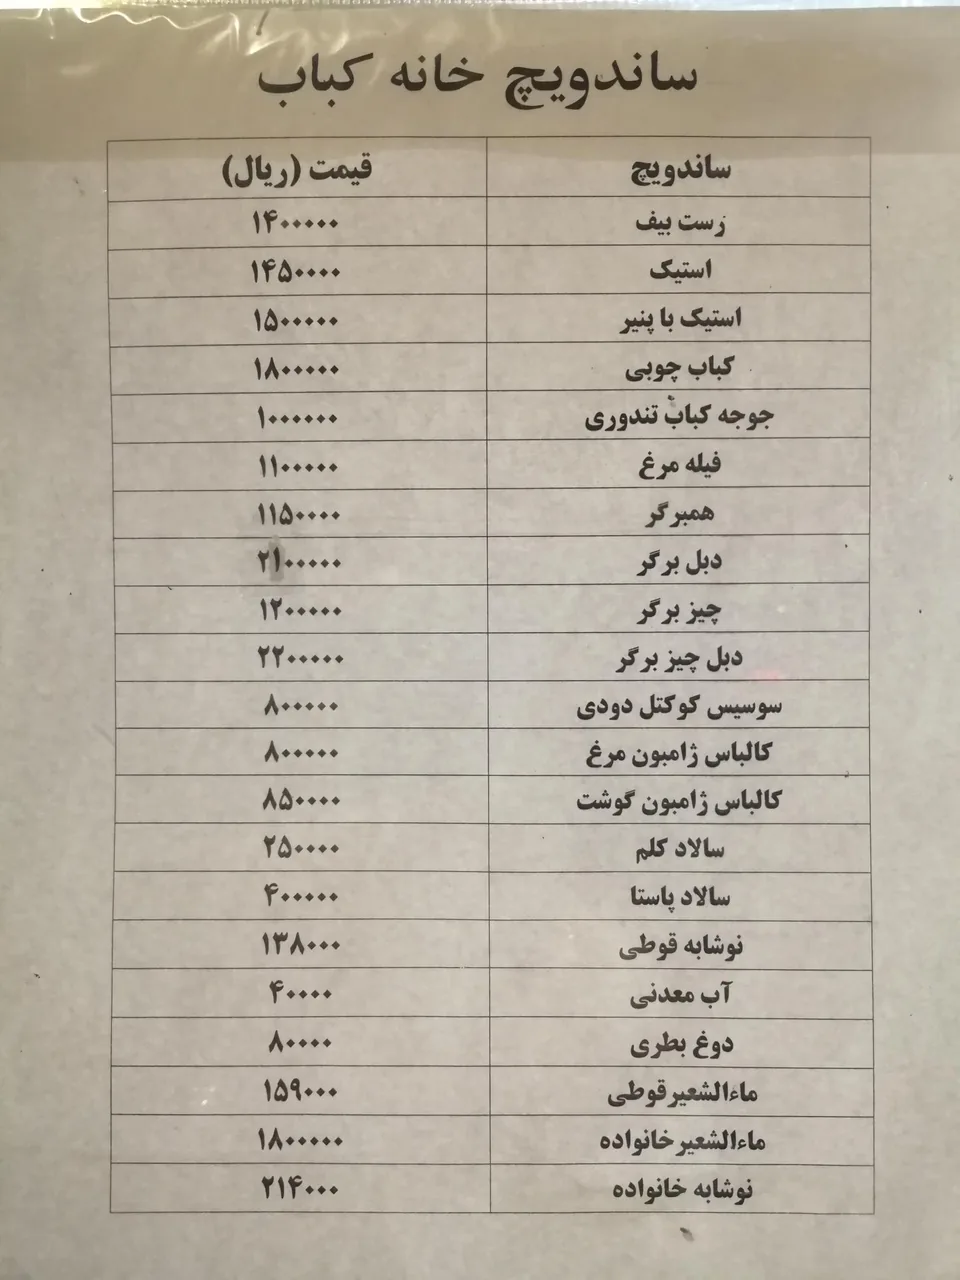 ساندویچ خانه کباب
ساندویچ قیمت (ریال)
رست بیف ۱۴۰۰۰۰۰
استیک ۱۴۵۰۰۰۰
استیک با پنیر ۱۵۰۰۰۰۰
کباب چوبی ۱۸۰۰۰۰۰
جوجه کباب تندوری ۱۰۰۰۰۰۰
فیله مرغ ۱۱۰۰۰۰۰
همبرگر ۱۱۵۰۰۰۰
دبل برگر ۲۱۰۰۰۰۰
چیز برگر ۱۲۰۰۰۰۰
دبل چیز برگر ۲۲۰۰۰۰۰
سوسیس کوکتل دودی ۸۰۰۰۰۰
کالباس ژامبون مرغ ۸۰۰۰۰۰
کالباس ژامبون گوشت ۸۵۰۰۰۰
سالاد کلم ۲۵۰۰۰۰
سالاد پاستا ۴۰۰۰۰۰
نوشابه قوطی ۱۳۸۰۰۰
آب معدنی ۴۰۰۰۰
دوغ بطری ۸۰۰۰۰
ماءالشعیرقوطی ۱۵۹۰۰۰
ماءالشعیرخانواده ۱۸۰۰۰۰۰
نوشابه خانواده ۲۱۴۰۰۰